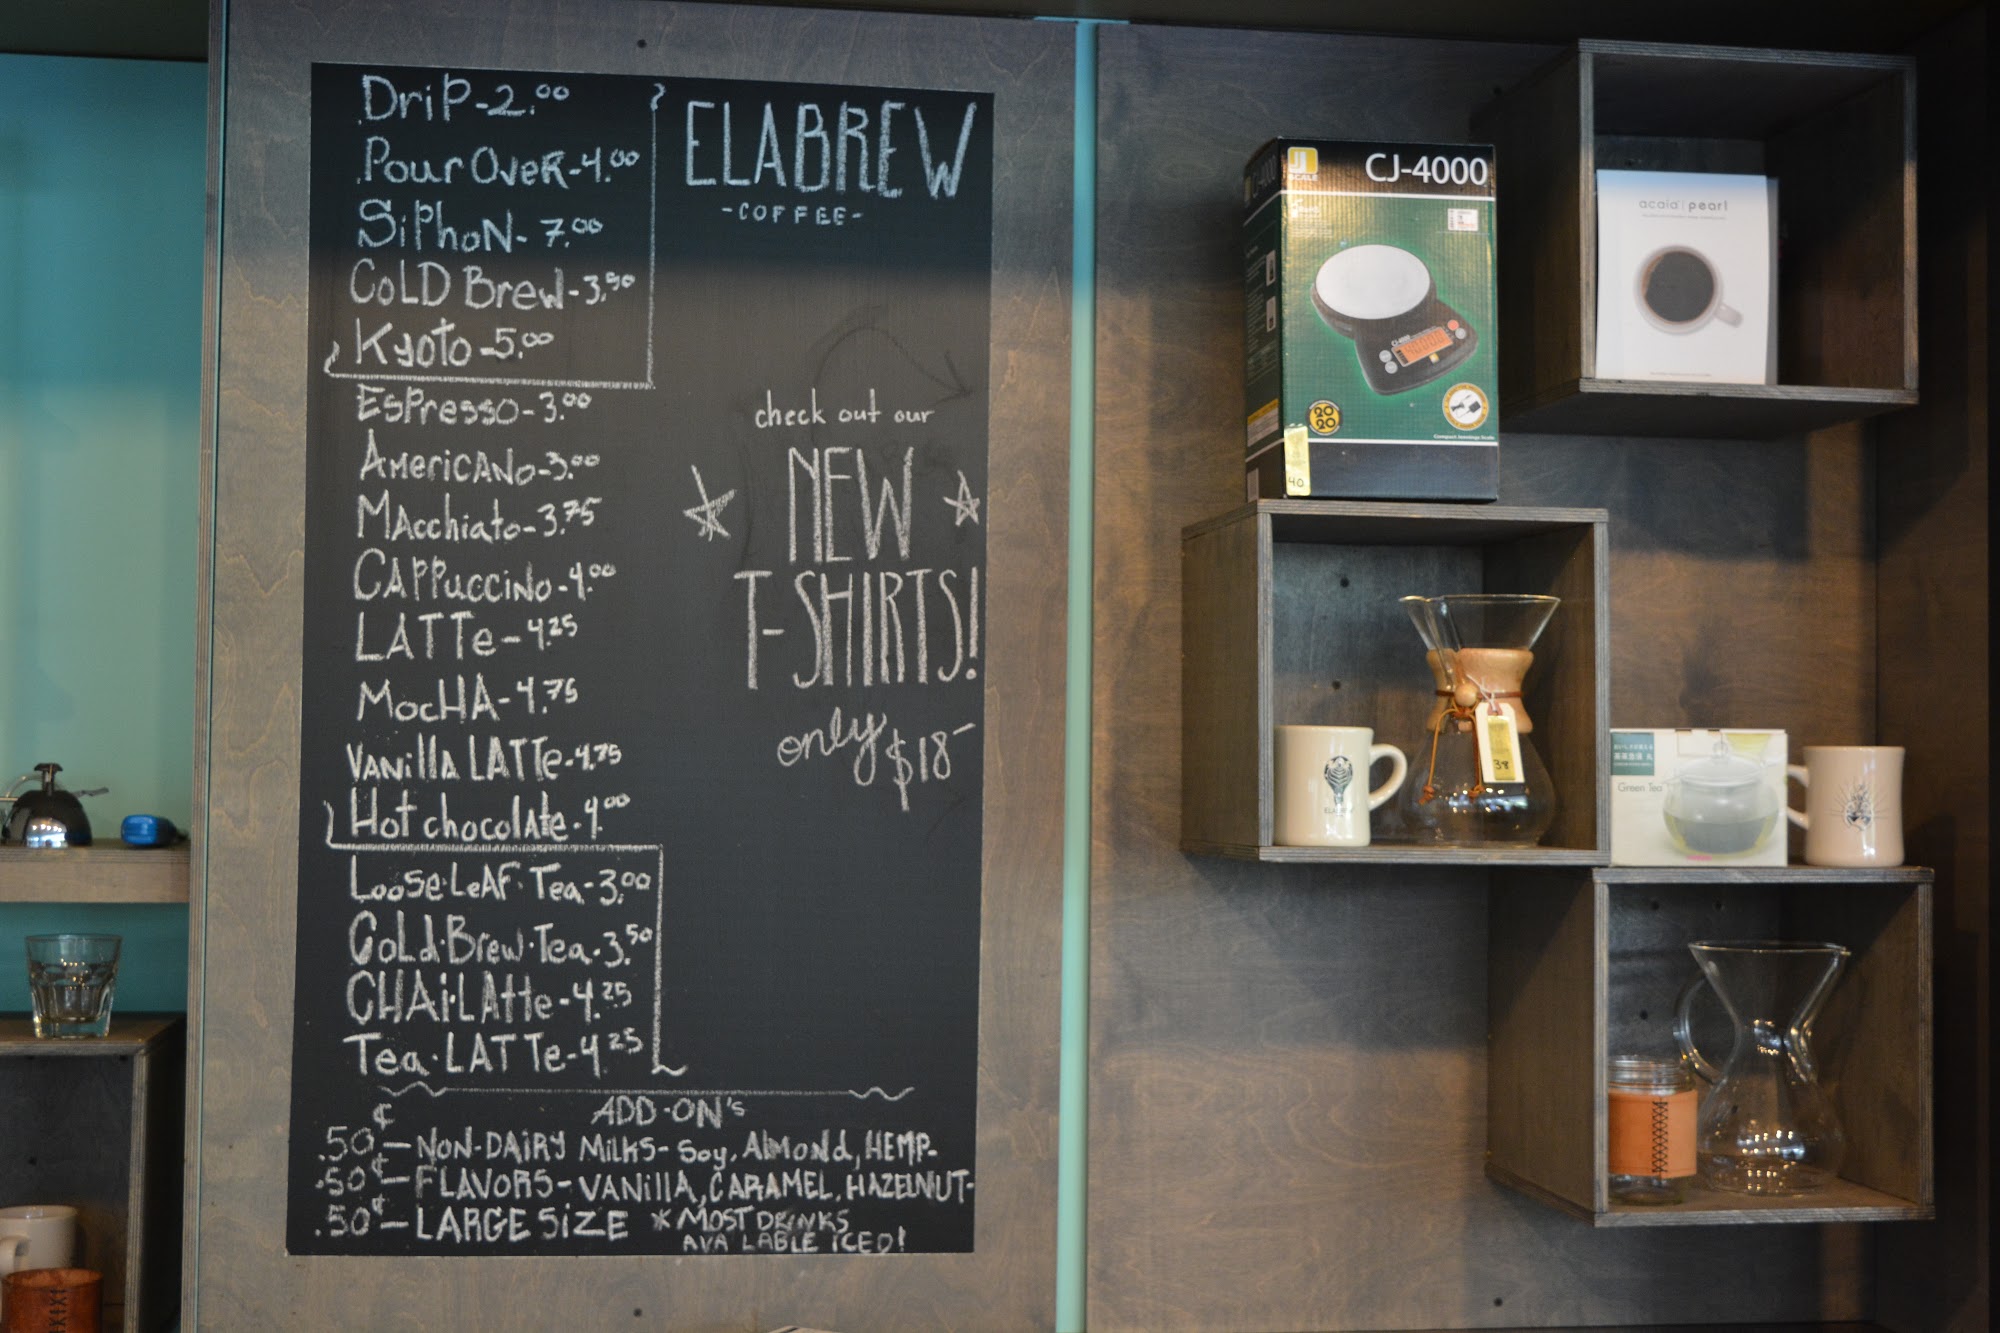 Drip-2.00
Pour Over-4.00
Siphon-7.00
Cold Brew-3.50
Kyoto-5.00
Espresso-3.00
Americano-3.00
Macchiato-3.75
Cappuccino-4.00
Latte-4.25
Mocha-4.75
Vanilla Latte-4.75
Hot chocolate-4.00
Loose·Leaf·Tea-3.00
Cold·Brew·Tea-3.50
Chai·Latte-4.25
Tea·Latte-4.25
ELABREW
-COFFEE-
check out our
NEW
T-SHIRTS!
only $18-
ADD-ON's
.50¢-NON-DAIRY MILKS-Soy, Almond, HEMP-
.50¢-FLAVORS-VANillA, CARAMEL, HAZELNUT-
.50¢-LARGE SiZE *MOST DRINKS
AVA LABLE iCED!
JSCALE
CJ-4000
CJ-4000
2020
Compact Jennings Scale
40
acaia | pearl
38
Green Tea